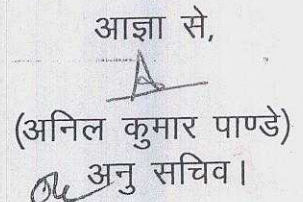 आज्ञा से,
(अनिल कुमार पाण्डे)
अनु सचिव।